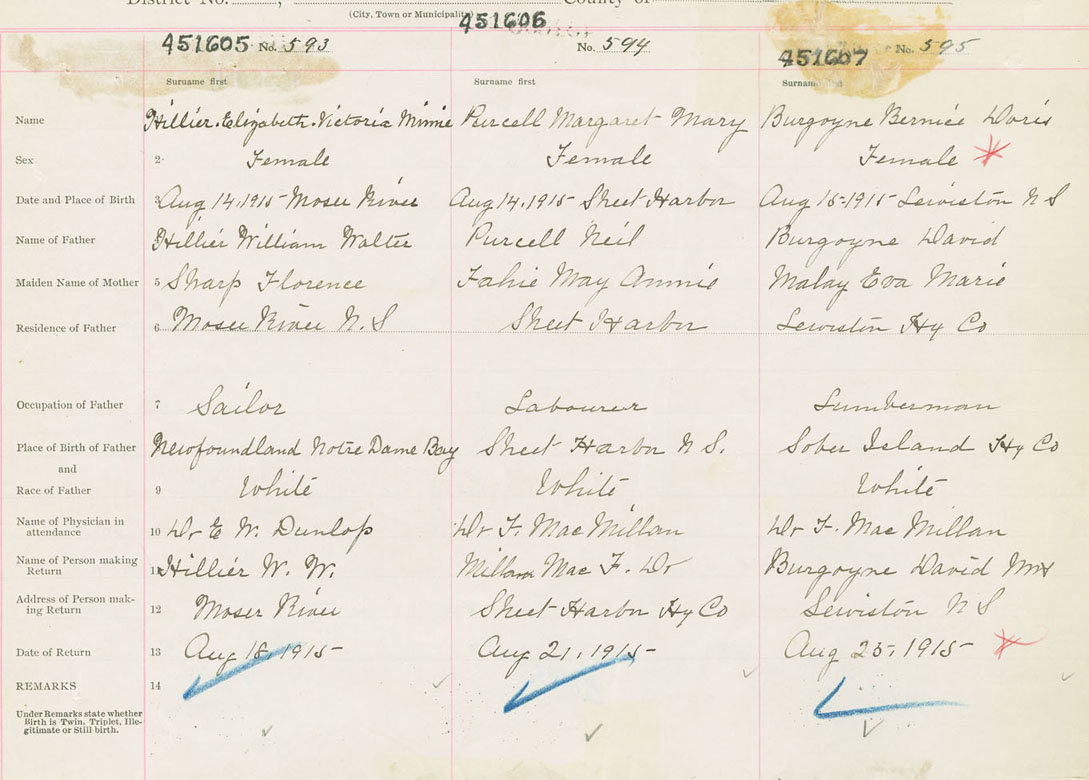 District No. , County of
(City, Town or Municipality)
451605 No. 593
451606 No. 594
451607 No. 595
Surname first Surname first Surname first
Name Hillier. Elizabeth. Victoria Minnie Purcell Margaret Mary Burgoyne Bernice Doris
Sex 2 Female Female Female
Date and Place of Birth 3 Aug 14, 1915 - Moser River Aug 14, 1915 - Sheet Harbor Aug 15-1915 - Lewiston N S
Name of Father Hillier William Walter Purcell Neil Burgoyne David
Maiden Name of Mother 5 Sharp Florence Fahie May Annie Malay Eva Marie
Residence of Father 6 Moser River N. S Sheet Harbor Lewiston Hy Co
Occupation of Father 7 Sailor Labourer Lumberman
Place of Birth of Father Newfoundland Notre Dame Bay Sheet Harbor N S. Sober Island Hy Co
and
Race of Father 9 White White White
Name of Physician in
attendance 10 Dr E W. Dunlop Dr F. MacMillan Dr F. Mac Millan
Name of Person making
Return 11 Hillier W. W. Millan Mac F. Dr Burgoyne David Mrs
Address of Person mak-
ing Return 12 Moser River Sheet Harbor Hy Co Lewiston N S
Date of Return 13 Aug 18, 1915- Aug 21, 1915- Aug 25, 1915-
REMARKS 14
Under Remarks state whether
Birth is Twin, Triplet, Ille-
gitimate or Still birth.